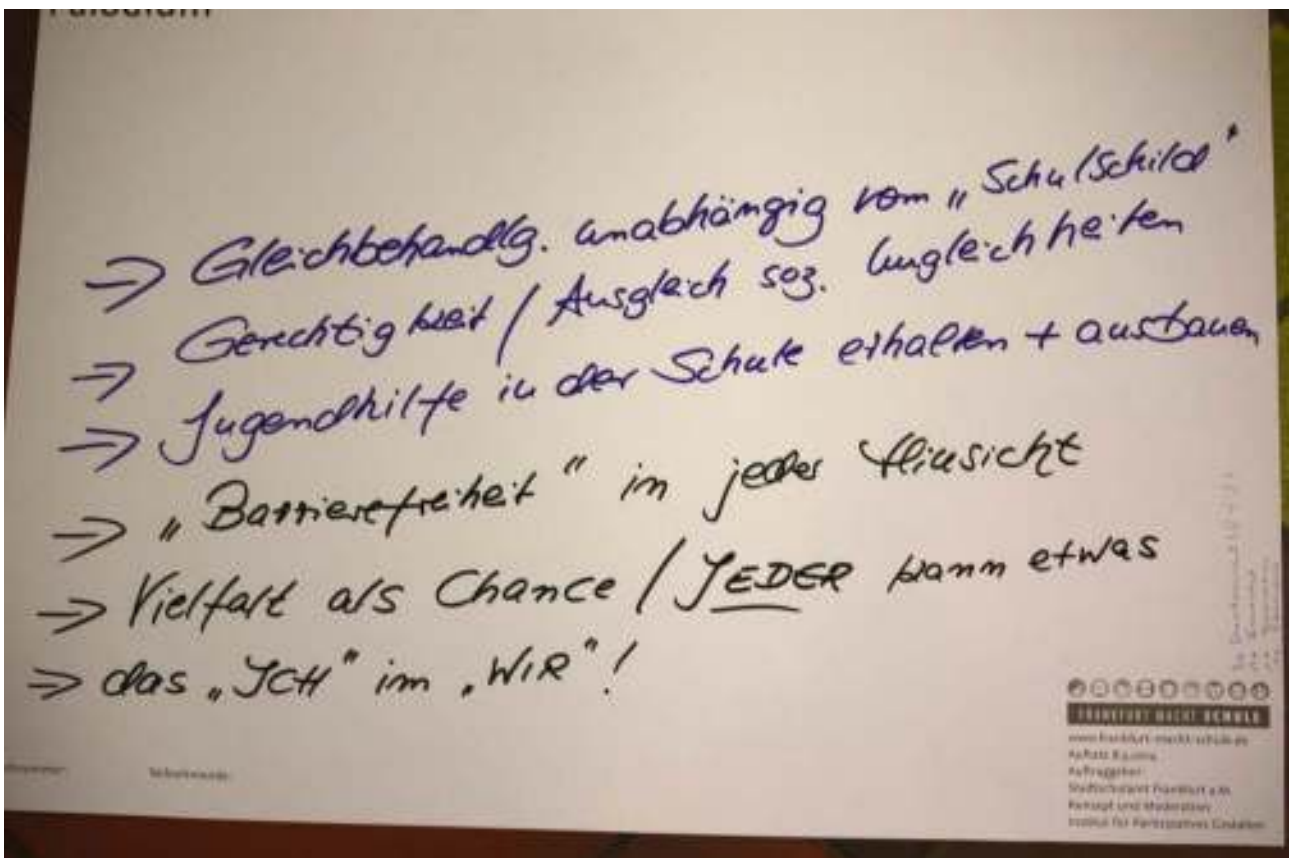 ⇒ Gleichbehandlg. unabhängig vom „Schulschild"
⇒ Gerechtigkeit / Ausgleich soz. Ungleichheiten
⇒ Jugendhilfe in der Schule erhalten + ausbauen
⇒ „Barrierefreiheit" in jeder Hinsicht
⇒ Vielfalt als Chance / JEDER kann etwas
⇒ das „ICH" im „WIR"!
FRANKFURT MACHT SCHULE
www.frankfurt-macht-schule.de
Auftraggeber:
Stadtschulamt Frankfurt a.M.
Konzept und Moderation
Institut für Partizipatives Gestalten